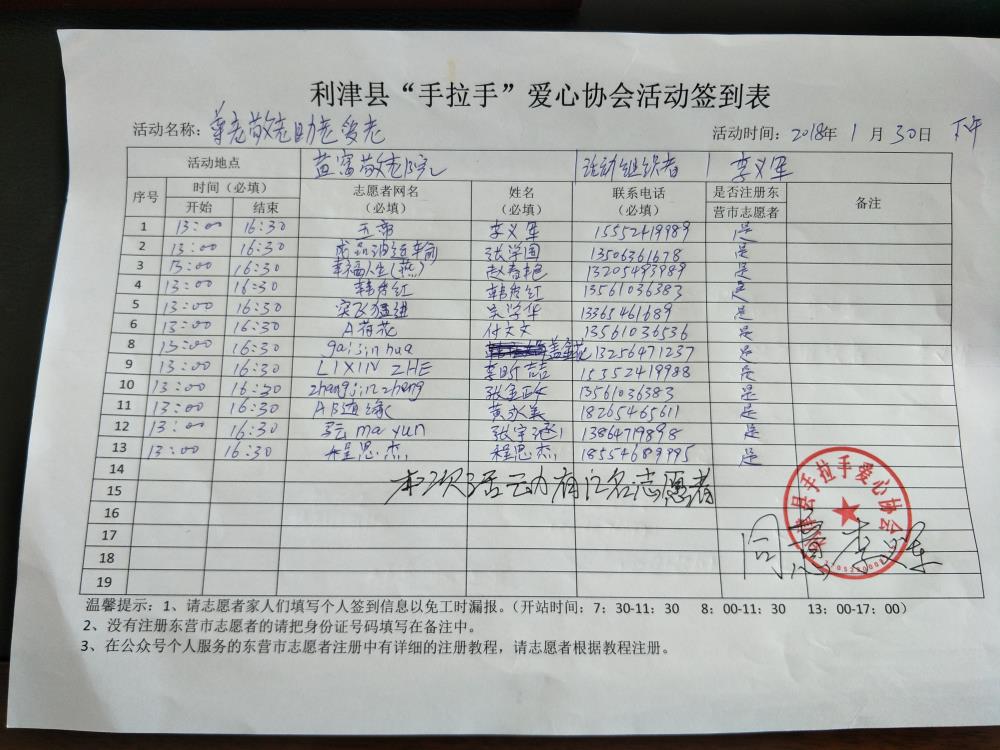 利津县“手拉手”爱心协会活动签到表
活动名称：尊老敬老助老爱老 活动时间：2018年 1月30日 下午
活动地点 益富敬老院 活动组织者 李义军
序号 时间（必填） 志愿者网名（必填） 姓名（必填） 联系电话（必填） 是否注册东营市志愿者 备注
开始 结束
1 13:00 16:30 李义军 15552419989 是
2 13:00 16:30 成品油运输 张学国 13506361678 是
3 13:00 16:30 幸福人生(燕) 赵春艳 13205493989 是
4 13:00 16:30 韩秀红 韩秀红 13561036383 是
5 13:00 16:30 突飞猛进 吴学华 13365461689 是
6 13:00 16:30 A荷花 付文文 13561036536 是
8 13:00 16:30 gaijinhua 盖金花 13256471237 是
9 13:00 16:30 LIXIN ZHE 李昕喆 15552419988 是
10 13:00 16:30 zhangjinzheng 张金政 13561036383 是
11 13:00 16:30 AB边缘 黄永美 18265465611 是
12 13:00 16:30 马云 ma yun 张宇涵 13864719898 是
13 13:00 16:30 程思杰 程思杰 18554689995 是
14
本次活动有12名志愿者
15
16
17
18
19
利津县手拉手爱心协会
李义军
温馨提示：1、请志愿者家人们填写个人签到信息以免工时漏报。（开站时间：7：30-11：30 8：00-11：30 13：00-17：00）
2、没有注册东营市志愿者的请把身份证号码填写在备注中。
3、在公众号个人服务的东营市志愿者注册中有详细的注册教程，请志愿者根据教程注册。